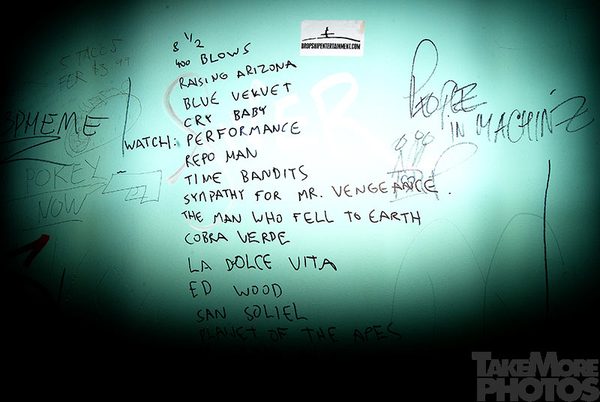 8 1/2
400 BLOWS
RAISING ARIZONA
BLUE VELVET
CRY BABY
WATCH: PERFORMANCE
REPO MAN
TIME BANDITS
SYMPATHY FOR MR. VENGEANCE.
THE MAN WHO FELL TO EARTH
COBRA VERDE
LA DOLCE VITA
ED WOOD
SAN SOLIEL
PLANET OF THE APES
DROPSHIPENTERTAINMENT.COM
IN MACHIN
POKEY
NOW
TAKEMORE
PHOTOS